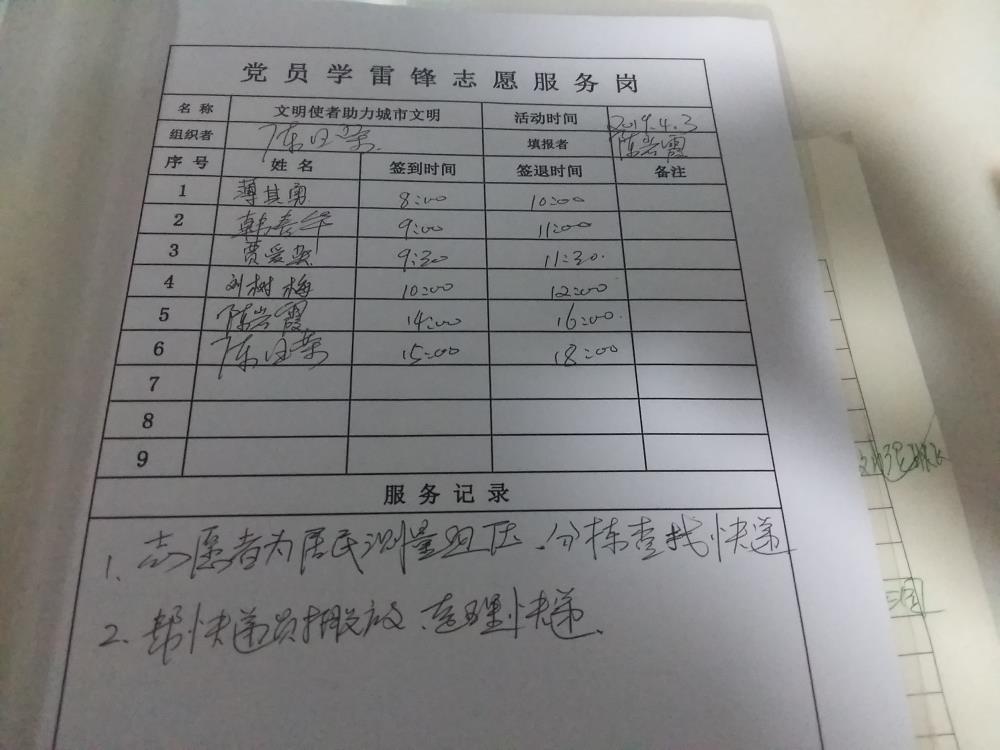 党员学雷锋志愿服务岗
名称 文明使者助力城市文明 活动时间 2019.4.3
组织者 陈 荣 填报者 陈兰霞
序号 姓名 签到时间 签退时间 备注
1 薄其勇 8:00 10:00
2 韩春华 9:00 11:00
3 贾爱 9:30 11:30
4 刘树梅 10:00 12:00
5 陈兰霞 14:00 16:00
6 陈 荣 15:00 18:00
7
8
9
服务记录
1、志愿者为居民测量血压、分拣查找快递
2、帮快递员摆放、整理快递、